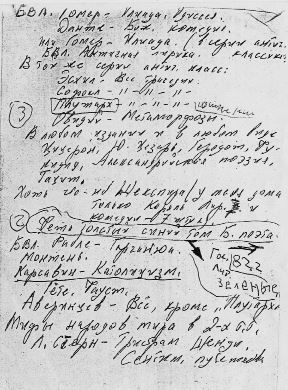 БВЛ. Гомер – Илиада, Одиссея.
Данте – Бож. комедия.
или Гомер – Илиада. в серии антич.
БВЛ. Античная лирика. классики.
В той же серии антич. класс:
Эсхил – Все трагедии.
Софокл – " – " – "
③ Плутарх – " – " –
Овидий – Метаморфозы.
В любом издании и в любом виде
Цицерон, Ю. Цезарь, Геродот, Фу-
кидид, Александрийская поэзия,
Тацит.
Хоть что-ни Шекспира / у меня дома
только Король Лир и
комедии в 7 /
② Фета толстый синий том Б. поэта.
БВЛ. Рабле – Гаргантюа.
Монтень.
Гос.
Лит 1822
зеленые
Карсавин – Католицизм.
Гёте. Фауст.
Аверинцев – Всё, кроме "Плутарха
Мифы народов мира в 2-х т.
Л. Стерн – Тристрам Шенди.
Сентим. путеш